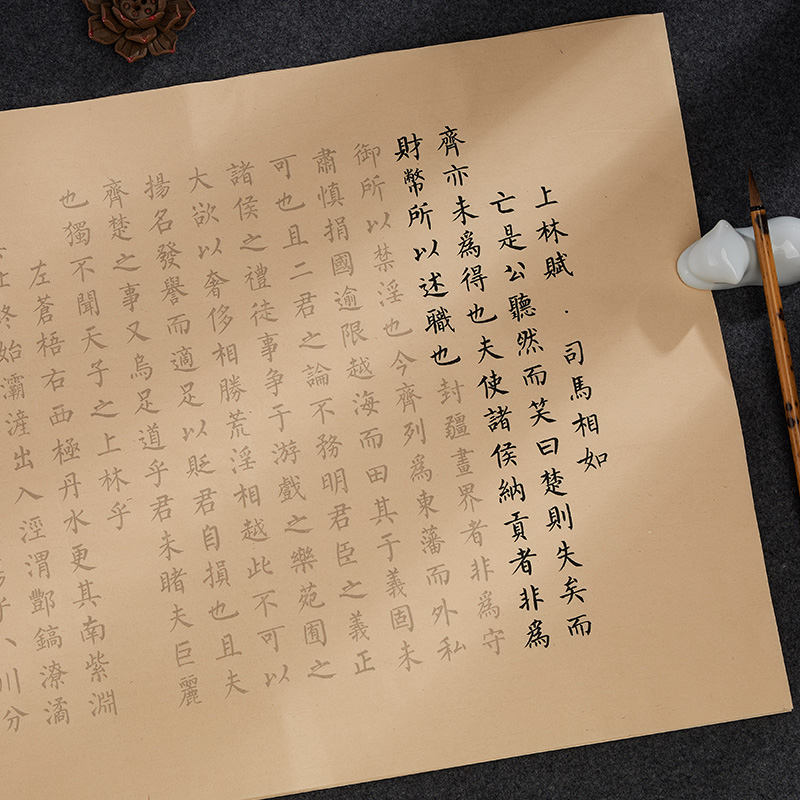 上林賦．司馬相如
亡是公聽然而笑曰楚則失矣而
齊亦未爲得也夫使諸侯納貢者非爲
財幣所以述職也封疆畫界者非爲守
御所以禁淫也今齊列爲東藩而外私
肅慎捐國逾限越海而田其于義固未
可也且二君之論不務明君臣之義正
諸侯之禮徒事争于游戲之樂苑囿之
大欲以奢侈相勝荒淫相越此不可以
揚名發譽而適足以貶君自損也且夫
齊楚之事又烏足道乎君未睹夫巨麗
也獨不聞天子之上林乎
左蒼梧右西極丹水更其南紫淵
終始灞滻出入涇渭酆鎬潦潏
川分